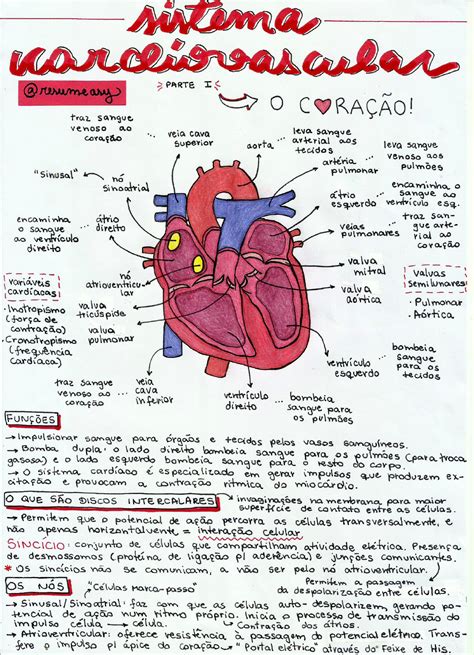 sistema
cardiovascular
@resumeasy
PARTE I
O CORAÇÃO!
traz sangue
venoso ao
coração
veia cava
superior
aorta
leva sangue
arterial aos
tecidos
artéria
pulmonar
leva sangue
venoso aos
pulmões
"Sinusal"
nó
sinoatrial
átrio
esquerdo
encaminha o
sangue ao
ventrículo esq.
encaminha
o sangue
ao ventrículo
direito
átrio
direito
veias
pulmonares
traz san-
gue arte-
rial ao
coração
variáveis
cardíacas
- Inotropismo
(força de
contração)
- Cronotropismo
(frequência
cardíaca)
nó
atrioventricu-
lar
valva
tricúspide
valva
pulmonar
valva
mitral
valva
aórtica
valvas
semilunares
- Pulmonar
- Aórtica
traz sangue
venoso ao
coração
veia
cava
inferior
ventrículo
direito
bombeia
sangue para
os pulmões
ventrículo
esquerdo
bombeia
sangue
para os
tecidos
FUNÇÕES
→ Impulsionar sangue para órgãos e tecidos pelos vasos sanguíneos.
→ Bomba dupla: o lado direito bombeia sangue para os pulmões (para troca
gasosa) e o lado esquerdo bombeia sangue para o resto do corpo.
→ O sistema cardíaco é especializado em gerar impulsos que produzem ex-
citação e provocam a contração rítmica do miocárdio.
O QUE SÃO DISCOS INTERCALARES
invaginações na membrana, para maior
superfície de contato entre as células.
→ Permitem que o potencial de ação percorra as células transversalmente, e
não apenas horizontalmente = interação celular
SINCÍCIO: conjunto de células que compartilham atividade elétrica. Presença
de desmossomos (proteína de ligação p/ aderência) e junções comunicantes.
* Os sincícios não se comunicam, a não ser pelo nó atrioventricular.
Permitem a passagem
da despolarização entre células.
OS NÓS
"Células marca-passo"
→ Sinusal/Sinoatrial: faz com que as células auto-despolarizem, gerando po-
tencial de ação num ritmo próprio. Inicia o processo de transmissão do
impulso célula → célula.
Contração dos átrios.
→ Atrioventricular: oferece resistência à passagem do potencial elétrico. Trans-
fere o impulso p/ ápice do coração
"Portal elétrico" através do Feixe de His.